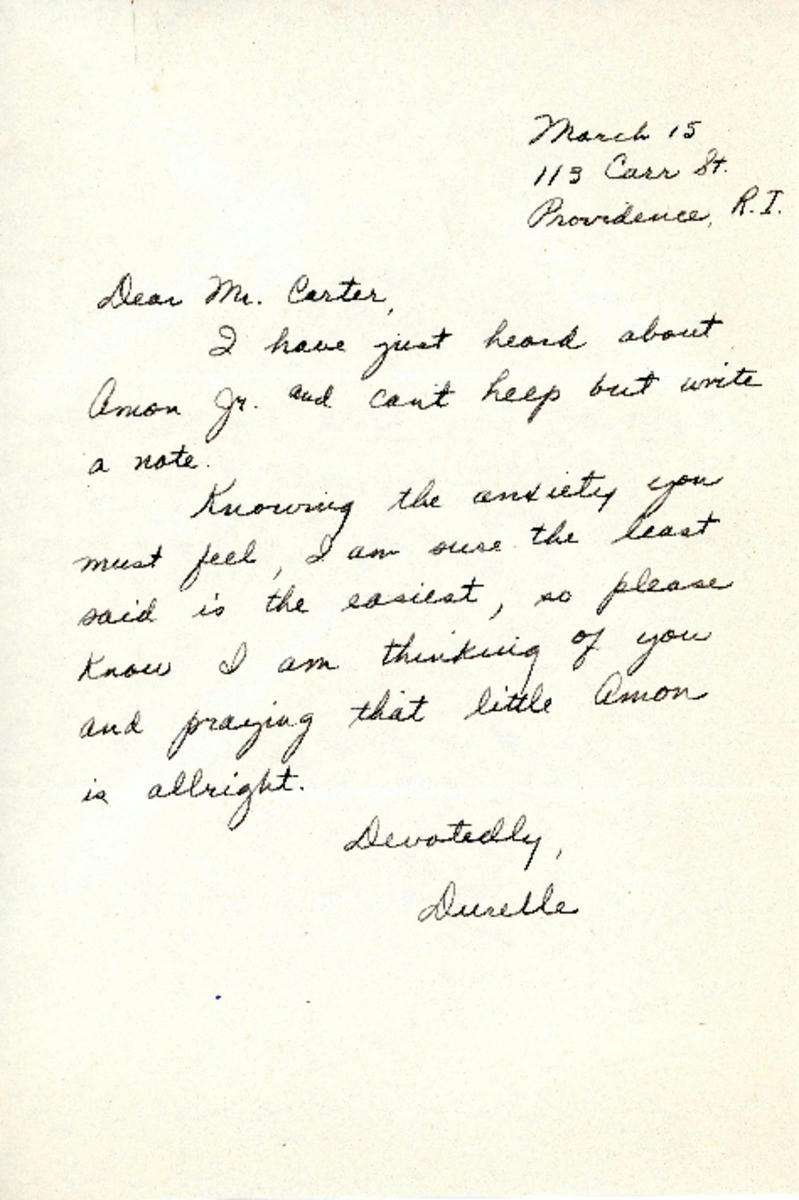 March 15
113 Carr St.
Providence, R.I.
Dear Mr. Carter,
I have just heard about
Amon Jr. and cant help but write
a note.
Knowing the anxiety you
must feel, I am sure the least
said is the easiest, so please
know I am thinking of you
and praying that little Amon
is allright.
Devotedly,
Durelle